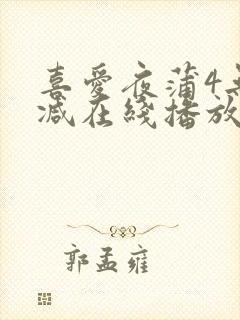 喜爱夜蒲4无
减在线播放
郭孟雍